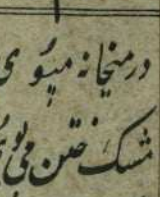 در میخانه میبوی
مشک ختن می‌بوی